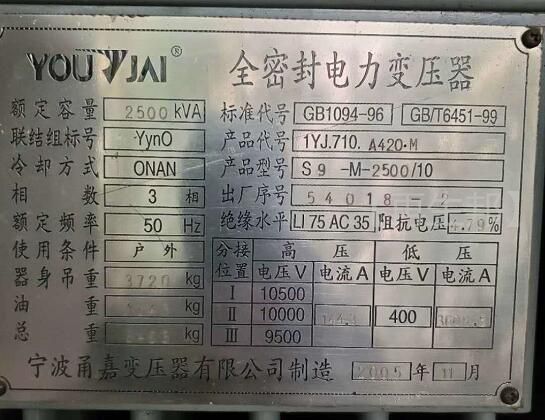 YOUJIAI® 全密封电力变压器
额定容量 2500 kVA 标准代号 GB1094-96 GB/T6451-99
联结组标号 Yyn0 产品代号 1YJ.710. A420·M
冷却方式 ONAN 产品型号 S9-M-2500/10
相数 3相 出厂序号 54018 2
额定频率 50 Hz 绝缘水平 LI 75 AC 35 阻抗电压 4.79%
使用条件 户外 分接位置 高压 低压
电压V 电流A 电压V 电流A
器身吊重 3720 kg Ⅰ 10500
油重 kg Ⅱ 10000 144.3 400
总重 kg Ⅲ 9500
宁波甬嘉变压器有限公司制造 2005年11月